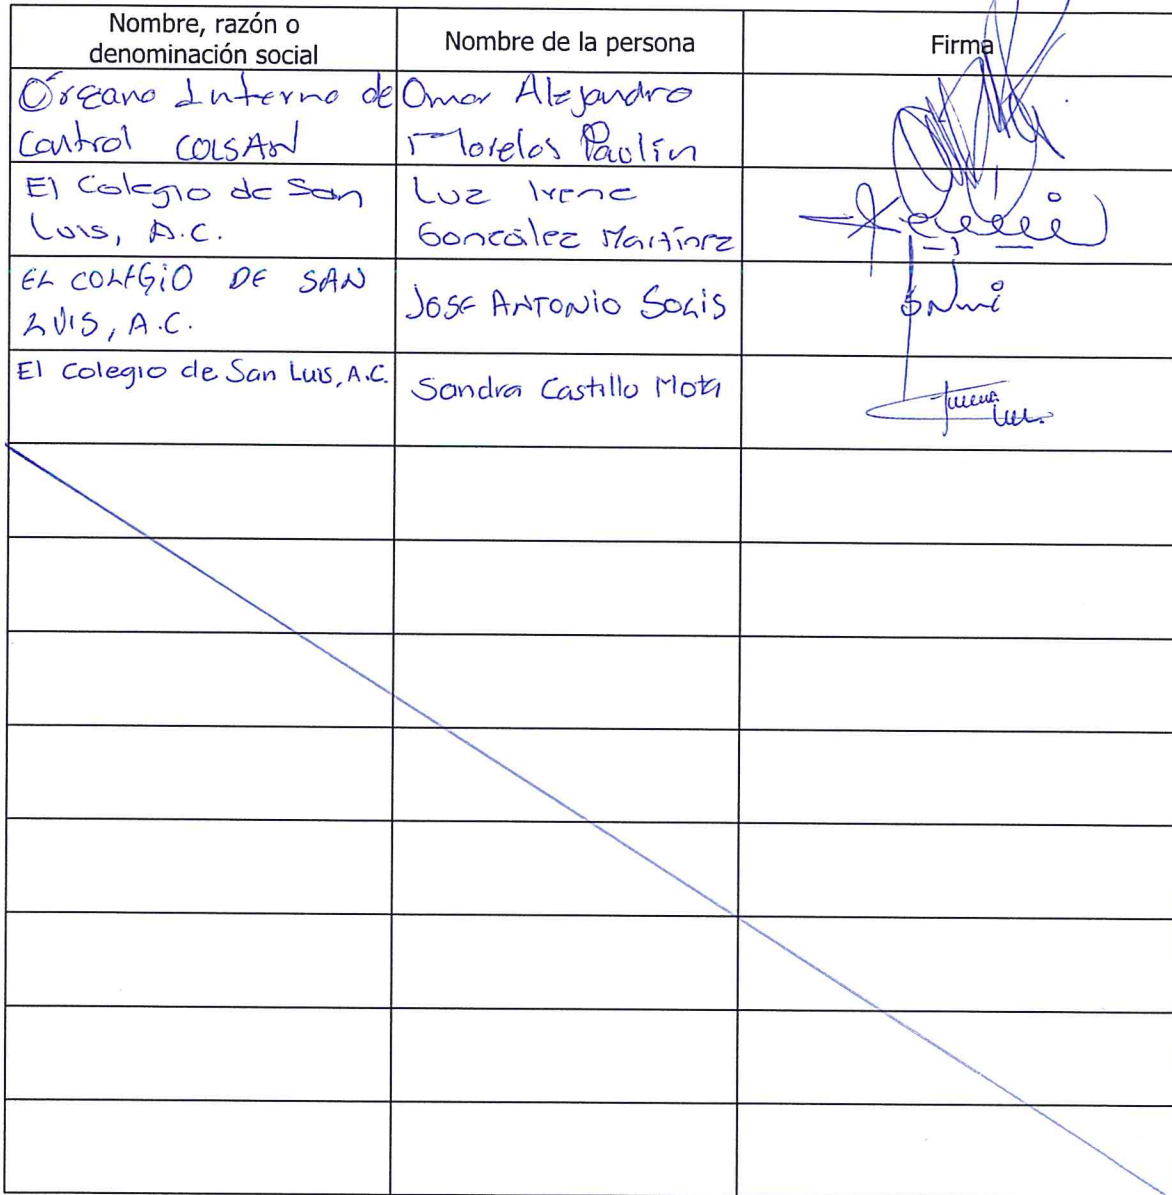 Nombre, razón o
denominación social
Nombre de la persona
Firma
Órgano Interno de
Control COLSAN
Omar Alejandro
Morelos Paulín
El Colegio de San
Luis, A.C.
Luz Irene
González Martínez
EL COLEGIO DE SAN
LUIS, A.C.
JOSE ANTONIO SOLIS
El Colegio de San Luis, A.C.
Sandra Castillo Mota